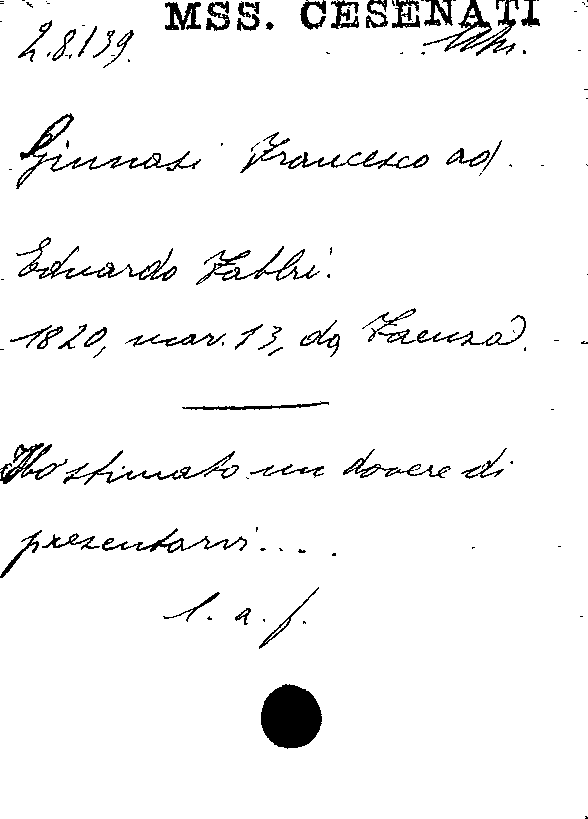 MSS. CESENATI
2.8.139.
Ginnasi Francesco ad
Eduardo Fabbri.
1820, mar. 13, da Faenza.
Ho stimato un dovere di
presentarvi....
l. a. f.